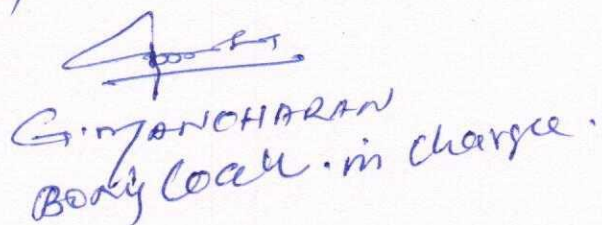 G. MANOHARAN
Boxing Coach. in charge.